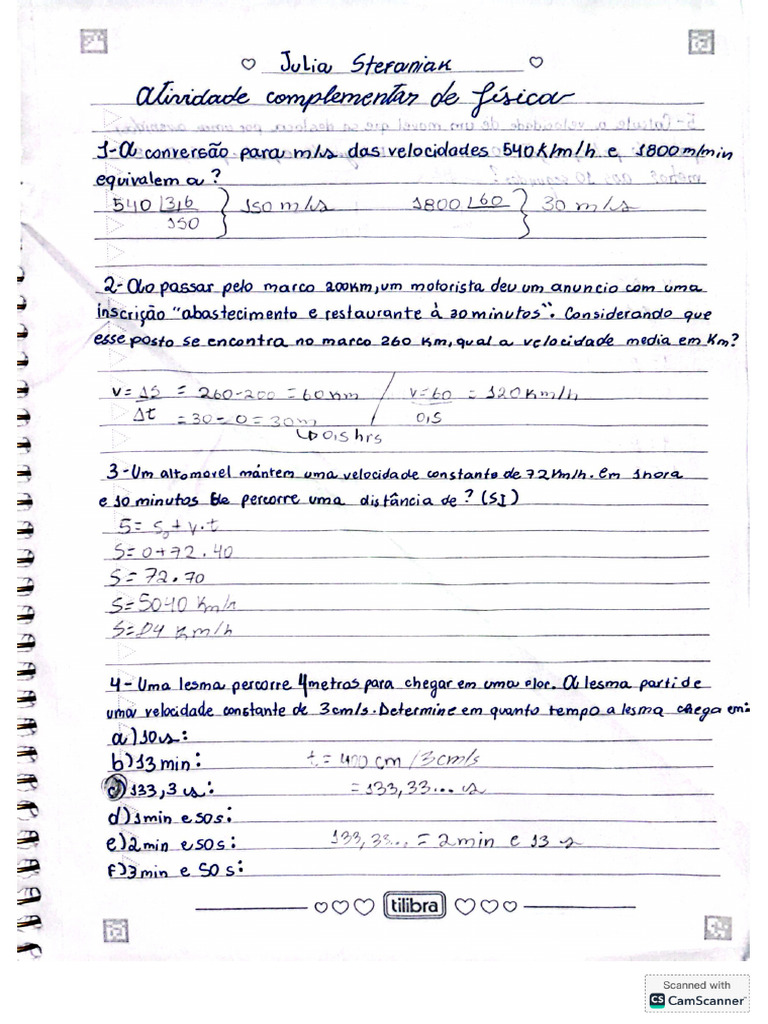 ♡ Julia Stefaniak ♡
Atividade complementar de física
1-A conversão para m/s das velocidades 540 Km/h e 1800 m/min
equivalem a?
540 | 3,6 } 150 m/s 1800 | 60 } 30 m/s
150
2- Ao passar pelo marco 200km, um motorista deu um anuncio com uma
inscrição "abastecimento e restaurante à 30 minutos". Considerando que
esse posto se encontra no marco 260 Km, qual a velocidade media em Km?
V = ΔS = 260-200 = 60 km / V=60 = 120 Km/h
Δt = 30-0 = 30m 0,5
↳ 0,5 hrs
3-Um altomovel mantem uma velocidade constante de 72 Km/h. Em 1 hora
e 10 minutos ele percorre uma distância de? (SI)
S = S₀ + v . t
S= 0+72.40
S= 72.70
S=5040 Km/h
S=84 Km/h
4-Uma lesma percorre 4 metros para chegar em uma flor. A lesma parti de
uma velocidade constante de 3cm/s. Determine em quanto tempo a lesma chega em:
a)10s:
b)13 min: t = 400 cm / 3cm/s
c)133,3 s: = 133,33... s
d)1min e 50s:
e)2min e 50s: 133,33... = 2 min e 13 s
f)3min e 50 s:
♡♡♡ tilibra ♡♡♡
Scanned with
CS CamScanner